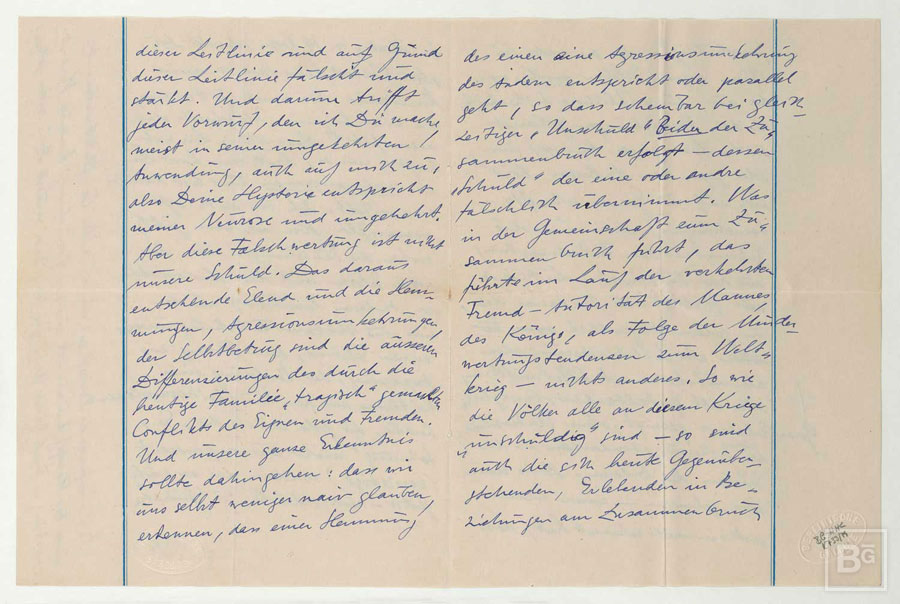 dieser Leitlinie rund auf Grund
dieser Leitlinie fälscht und
stärkt. Und darum trifft
jeder Vorwurf, den ich Dir mache
meist in seiner umgekehrten
Anwendung, auch auf mich zu,
also Deine Hysterie entspricht
meiner Neurose und umgekehrt.
Aber diese Falschwertung ist nicht
unsere Schuld. Das daraus
entstehende Elend und die Hem-
mungen, Agressionsumkehrungen,
der Selbstbetrug sind die äusseren
Differenzierungen des durch die
heutige Familie „tragisch“ gemachten
Conflikts des Eignen und Fremden.
Und unsere ganze Erkenntnis
sollte dahingehen: dass wir
uns selbst weniger naiv glauben,
erkennen, dass einer Hemmung
des einen eine Agressionsumkehrung
des Andern entspricht oder parallel
geht, so dass scheinbar bei gleich-
zeitiger „Unschuld“ Beider der Zu-
sammenbruch erfolgt – dessen
„Schuld“ der eine oder andre
fälschlich übernimmt. Was
in der Gemeinschaft zum Zu-
sammenbruch führt, das
führte im Lauf der verkehrten
Fremd-Autorität des Mannes,
des Königs, als Folge der Minder-
wertungstendenzen zum Welt-
krieg – nichts anderes. So wie
die Völker alle an diesem Kriege
„unschuldig“ sind – so sind
auch die sich heute Gegenüber-
stehenden, Erlebenden in Be-
ziehungen am Zusammenbruch
BG